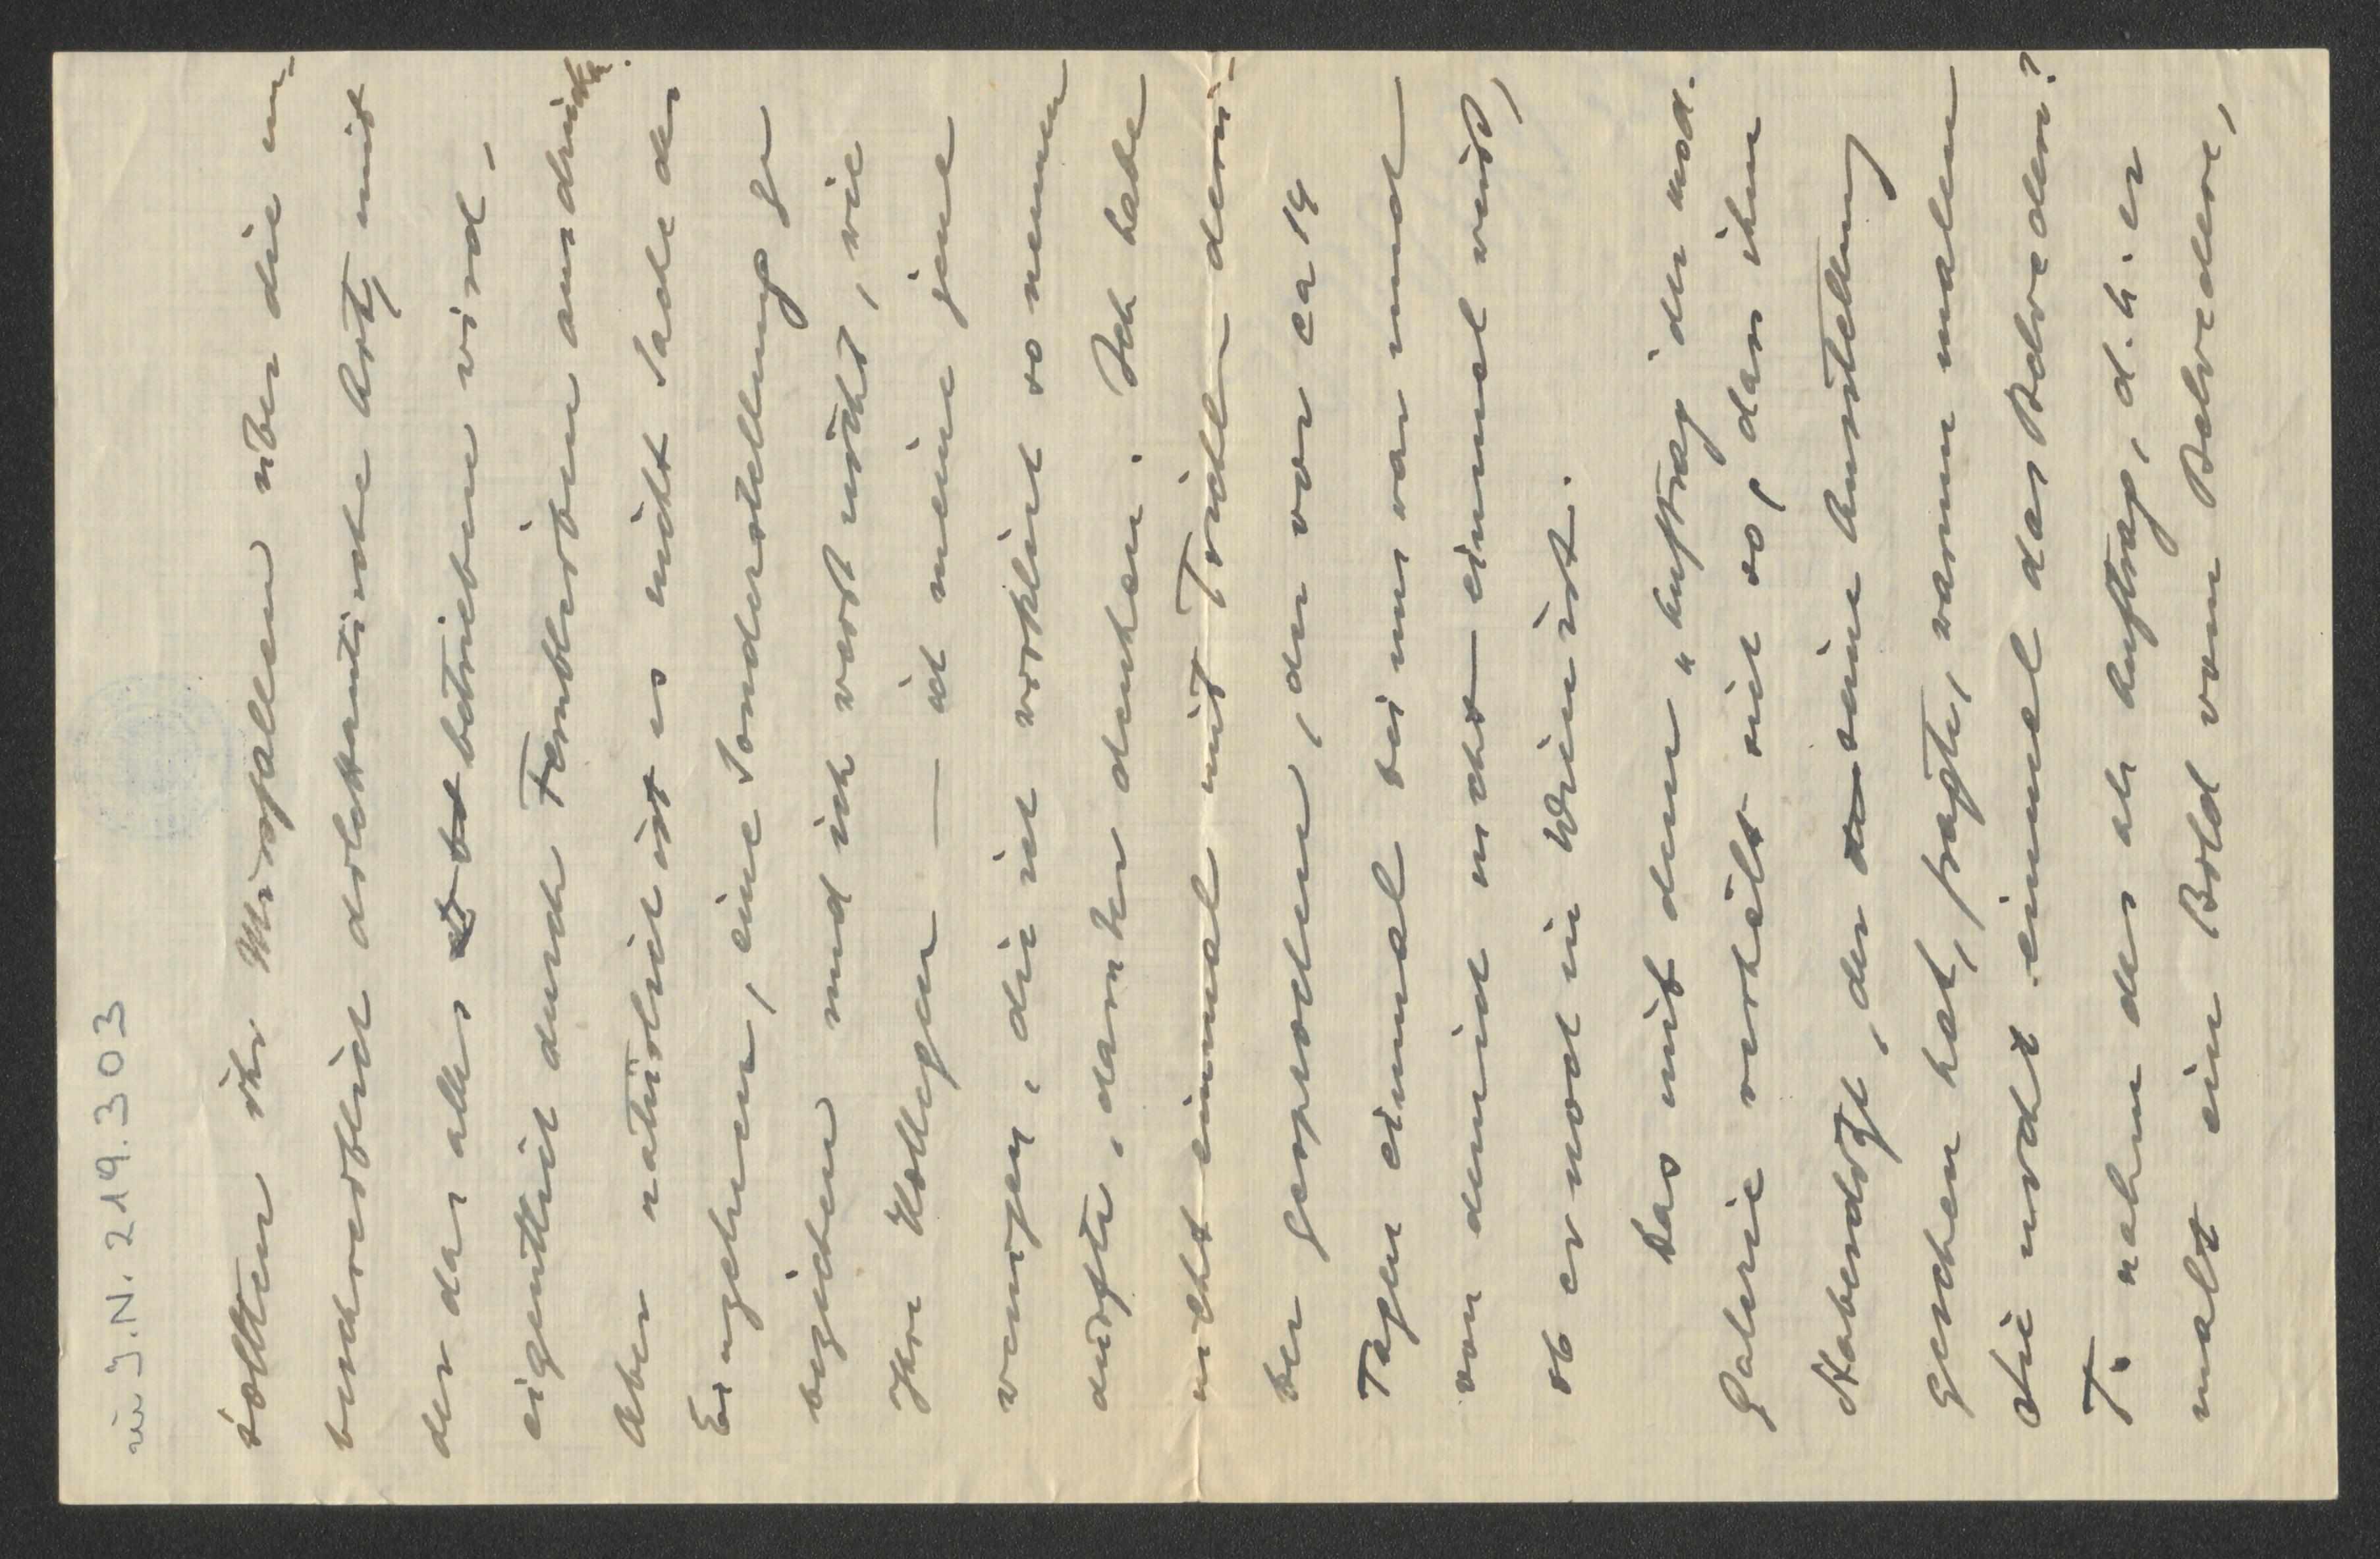 zu J.N. 219.303
sollten ihr Missfallen über die un-
beschreiblich dilettantische Art, mit
der das alles betrieben wird,
eigentlich durch Fernbleiben ausdrücken.
Aber natürlich ist es nicht Sache des
Einzelnen, eine Sonderstellung zu
beziehen und ich weiß nicht, wie
Ihre Kollegen — ich meine jene
wenigen, die ich wirklich so nennen
dürfte, darüber denken. Ich habe
nicht einmal mit Tischler darü-
ber gesprochen, der vor ca 14
Tagen einmal bei uns war und
von dem ich nicht einmal weiß,
ob er noch in Wien ist.
Das mit dem „Auftrag der mod.
Galerie verhält sich so, dass ihm
Haberditzl, der seine Ausstellung
gesehen hat, fragte, warum malen
Sie nicht einmal das Belvedere?
T. nahm das als Auftrag, d.h. er
malt ein Bild vom Belvedere,